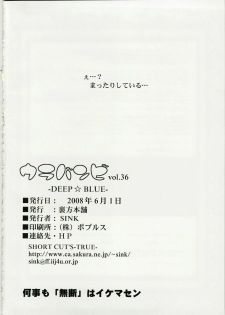 ぇ…？
まったりしている…
ウラバンビ vol.36
-DEEP☆BLUE-
■発行日： 2008年6月1日
■発行： 裏方本舗
■発行者： SINK
■印刷所： （株）ポプルス
■連絡先・HP
SHORT CUT'S-TRUE-
http://www.ca.sakura.ne.jp/~sink/
sink@ff.iij4u.or.jp
何事も「無断」はイケマセン